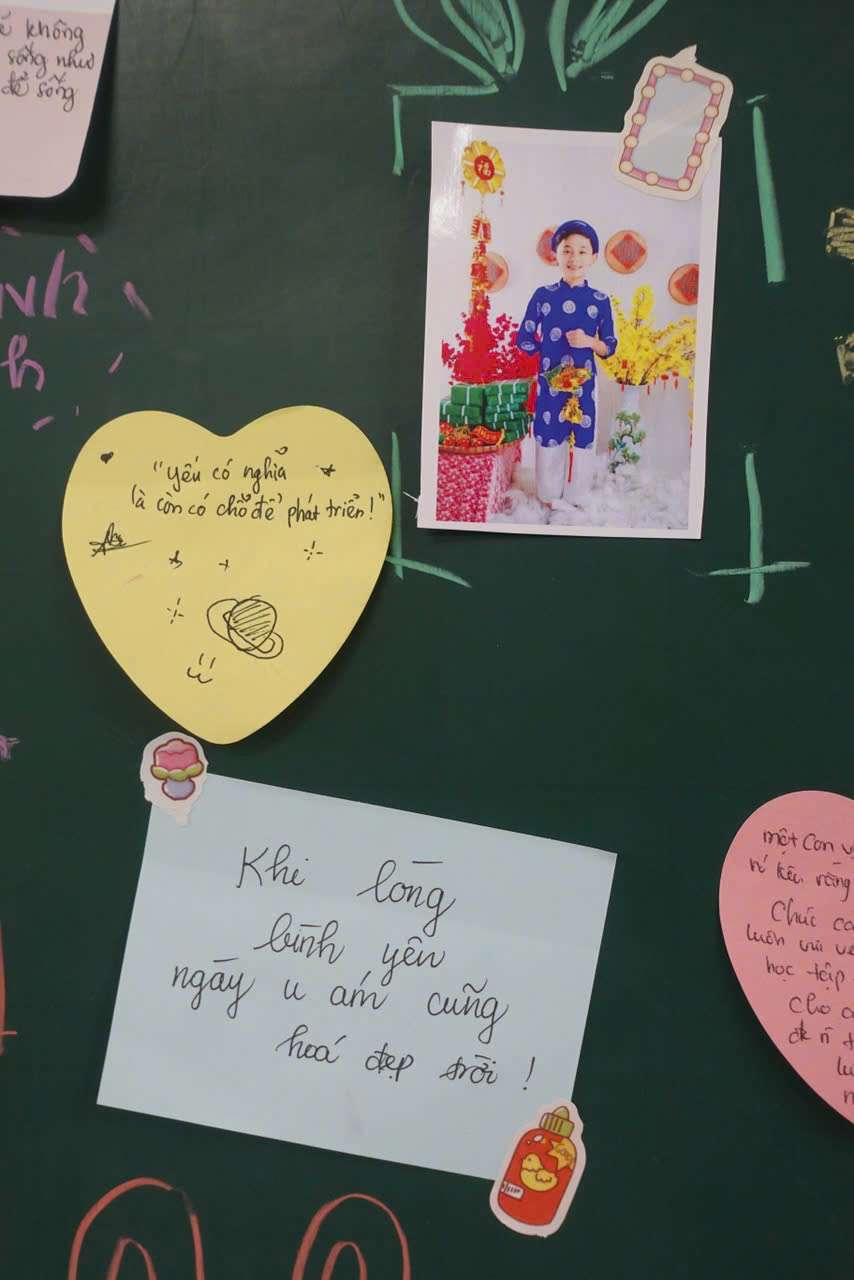 không
sống như
để sống
福
"yếu có nghĩa
là còn có chỗ để phát triển!"
Khi lòng
bình yên
ngày u ám cũng
hoá đẹp trời !
một con
Chúc
luôn vui vẻ
học tập
cho